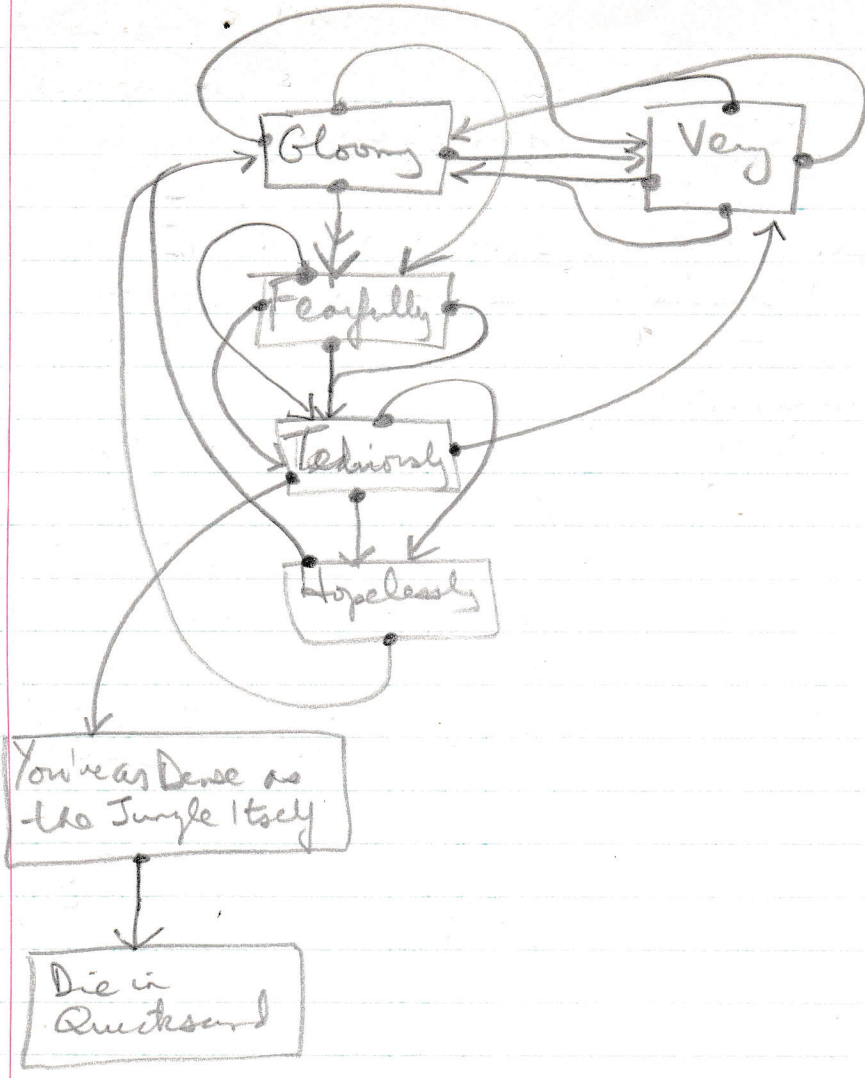 Gloomy
Very
Fearfully
Tediously
Hopelessly
You're as Dense as
the Jungle Itself
Die in
Quicksand